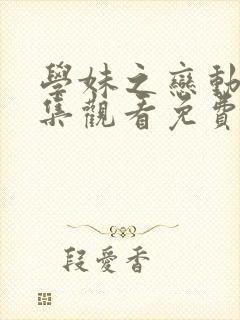 學妹之戀動
集觀看免費
段愛香